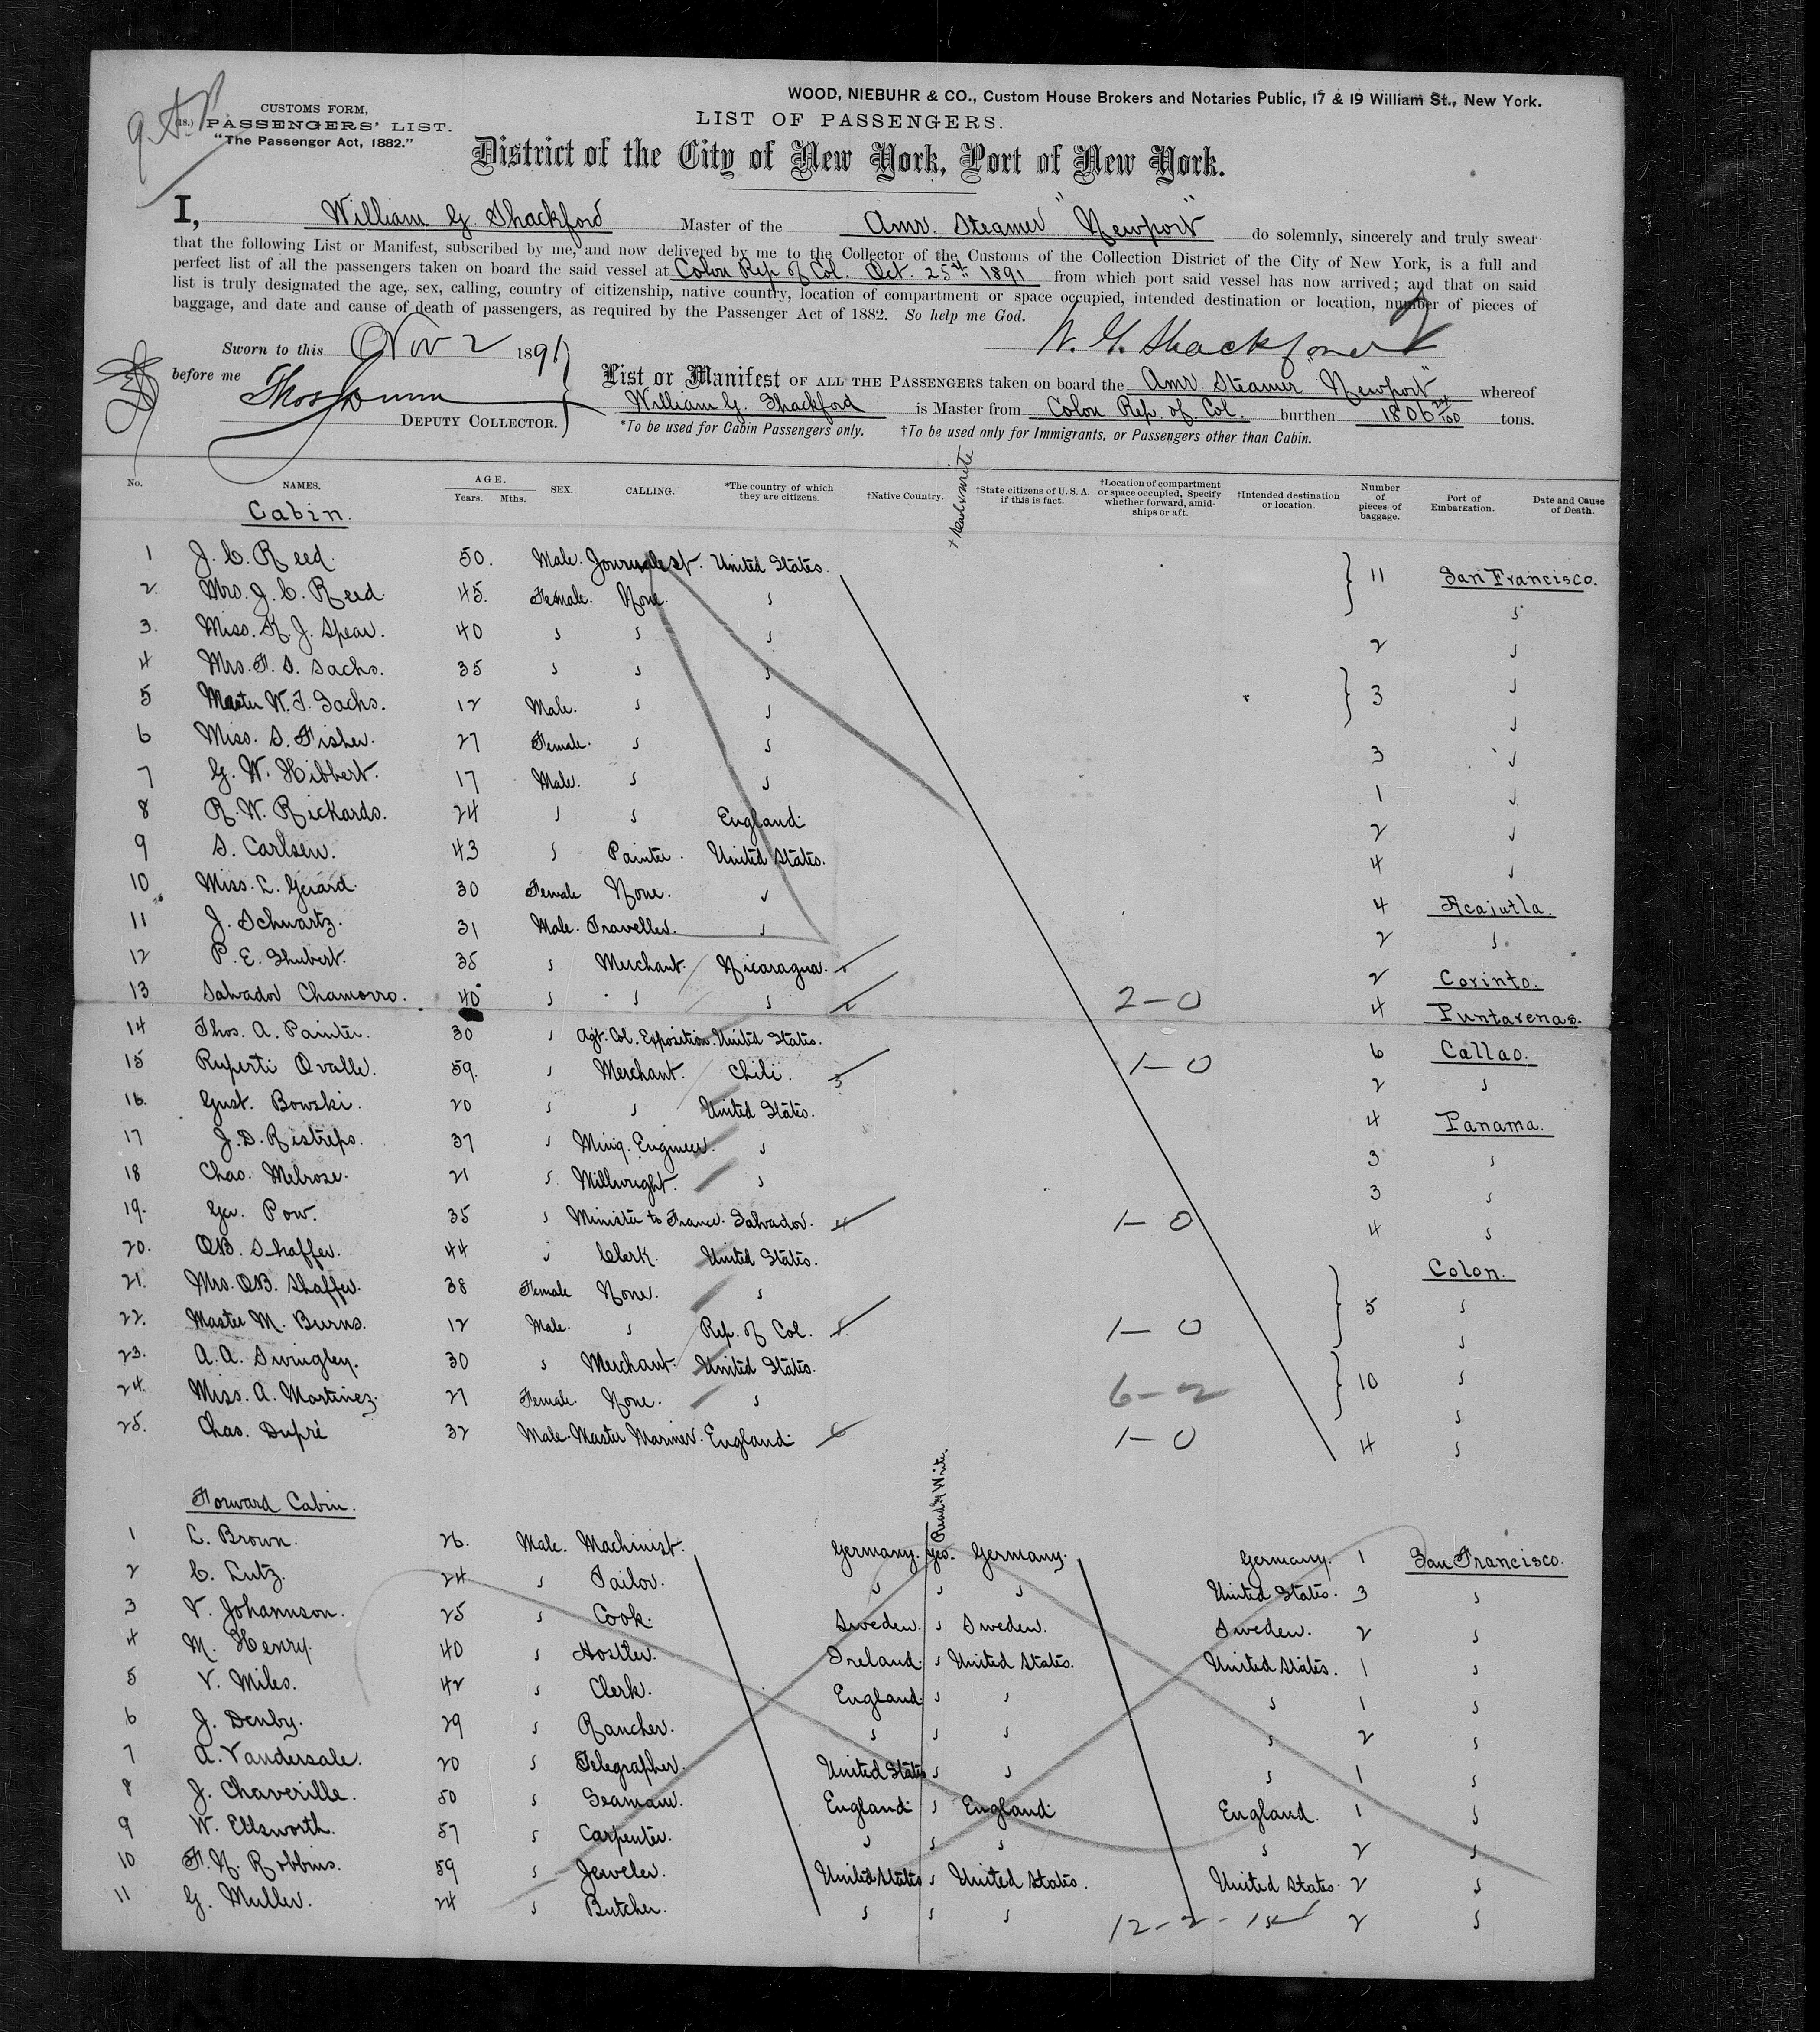 WOOD, NIEBUHR & CO., Custom House Brokers and Notaries Public, 17 & 19 William St., New York.
CUSTOMS FORM,
(18.) PASSENGERS' LIST.
"The Passenger Act, 1882."
LIST OF PASSENGERS.
District of the City of New York, Port of New York.
I, William G. Shackford Master of the Amr. Steamer "Newport" do solemnly, sincerely and truly swear
that the following List or Manifest, subscribed by me, and now delivered by me to the Collector of the Customs of the Collection District of the City of New York, is a full and
perfect list of all the passengers taken on board the said vessel at Colon Rep. of Col. Oct. 25th 1891 from which port said vessel has now arrived; and that on said
list is truly designated the age, sex, calling, country of citizenship, native country, location of compartment or space occupied, intended destination or location, number of pieces of
baggage, and date and cause of death of passengers, as required by the Passenger Act of 1882. So help me God.
W. G. Shackford
Sworn to this Nov 2 1891
before me
DEPUTY COLLECTOR.
List or Manifest OF ALL THE PASSENGERS taken on board the Amr. Steamer "Newport" whereof
William G. Shackford is Master from Colon Rep. of Col. burthen 1806 24/100 tons.
*To be used for Cabin Passengers only. †To be used only for Immigrants, or Passengers other than Cabin.
No. NAMES. AGE. Years. Mths. SEX. CALLING. *The country of which they are citizens. †Native Country. † Read & write †State citizens of U. S. A. if this is fact. †Location of compartment or space occupied, Specify whether forward, amid-ships or aft. †Intended destination or location. Number of pieces of baggage. Port of Embarkation. Date and Cause of Death.
Cabin.
1 J. C. Reed. 50. Male. Journalist. United States. 11 San Francisco.
2. Mrs. J. C. Reed. 45. Female. None. "
3. Miss. K. J. Spear. 40 " " " 2 "
4 Mrs. F. S. Sachs. 35 " " " 3 "
5 Master W. F. Sachs. 12 Male. " " "
6 Miss. S. Fisher. 27 Female. " " 3 "
7 G. W. Hibbert. 17 Male. " " 1 "
8 R. W. Rickards. 24 " " England. 2 "
9 S. Carlsen. 43 " Painter. United States. 4 "
10 Miss. L. Gerard. 30 Female None. " 4 Acajutla.
11 J. Schwartz. 31 Male. Traveller. " 2 "
12 P. E. Shubert. 35 " Merchant. Nicaragua. 1 2 Corinto.
13 Salvador Chamorro. 40 " " " 2 2-0 4 Puntarenas.
14 Thos. A. Painter. 30 " Agt. Col. Exposition. United States. 6 Callao.
15 Ruperti Ovalle. 59. " Merchant. Chili. 3 1-0 2 "
16. Gust. Bowski. 20 " " United States. 4 Panama.
17 J. D. Ristreps. 37 " Ming. Engineer. " 3 "
18 Chas. Melrose. 21 " Millwright. " 3 "
19. Gen. Pow. 35 " Minister to France. Salvador. 4 1-0 4 "
20. O.B. Shaffer. 44 " Clerk. United States. Colon.
21. Mrs. O.B. Shaffer. 38 Female None. " 5 "
22. Master M. Burns. 12 Male. " Rep. of Col. 5 1-0 "
23. A. A. Swingley. 30 " Merchant. United States. 10 "
24. Miss. A. Martinez. 27 Female. None. " 6-2 "
25. Chas. Dupré 32 Male. Master Mariner. England. 6 1-0 4 "
Forward Cabin.
Read & Write.
1 L. Brown. 26. Male. Machinist. Germany. Yes. Germany. Germany. 1 San Francisco.
2 C. Lutz. 24 " Tailor. " " " United States. 3 "
3 V. Johannson. 25 " Cook. Sweden. " Sweden. Sweden. 2 "
4 M. Henry. 40 " Hostler. Ireland. " United States. United States. 1 "
5 V. Miles. 42 " Clerk. England. " " " 1 "
6 J. Denby. 29 " Rancher. " " " " 2 "
7 A. Vandersale. 20 " Telegrapher. United States " " " 1 "
8 J. Chaverille. 50 " Seaman. England " England England. 1 "
9 W. Ellsworth. 57 " Carpenter. " " " " 2 "
10 F. N. Robbins. 59 " Jeweler. United States " United States. United States. 2 "
11 G. Muller. 24 " Butcher. " " " 12-2- 2 "